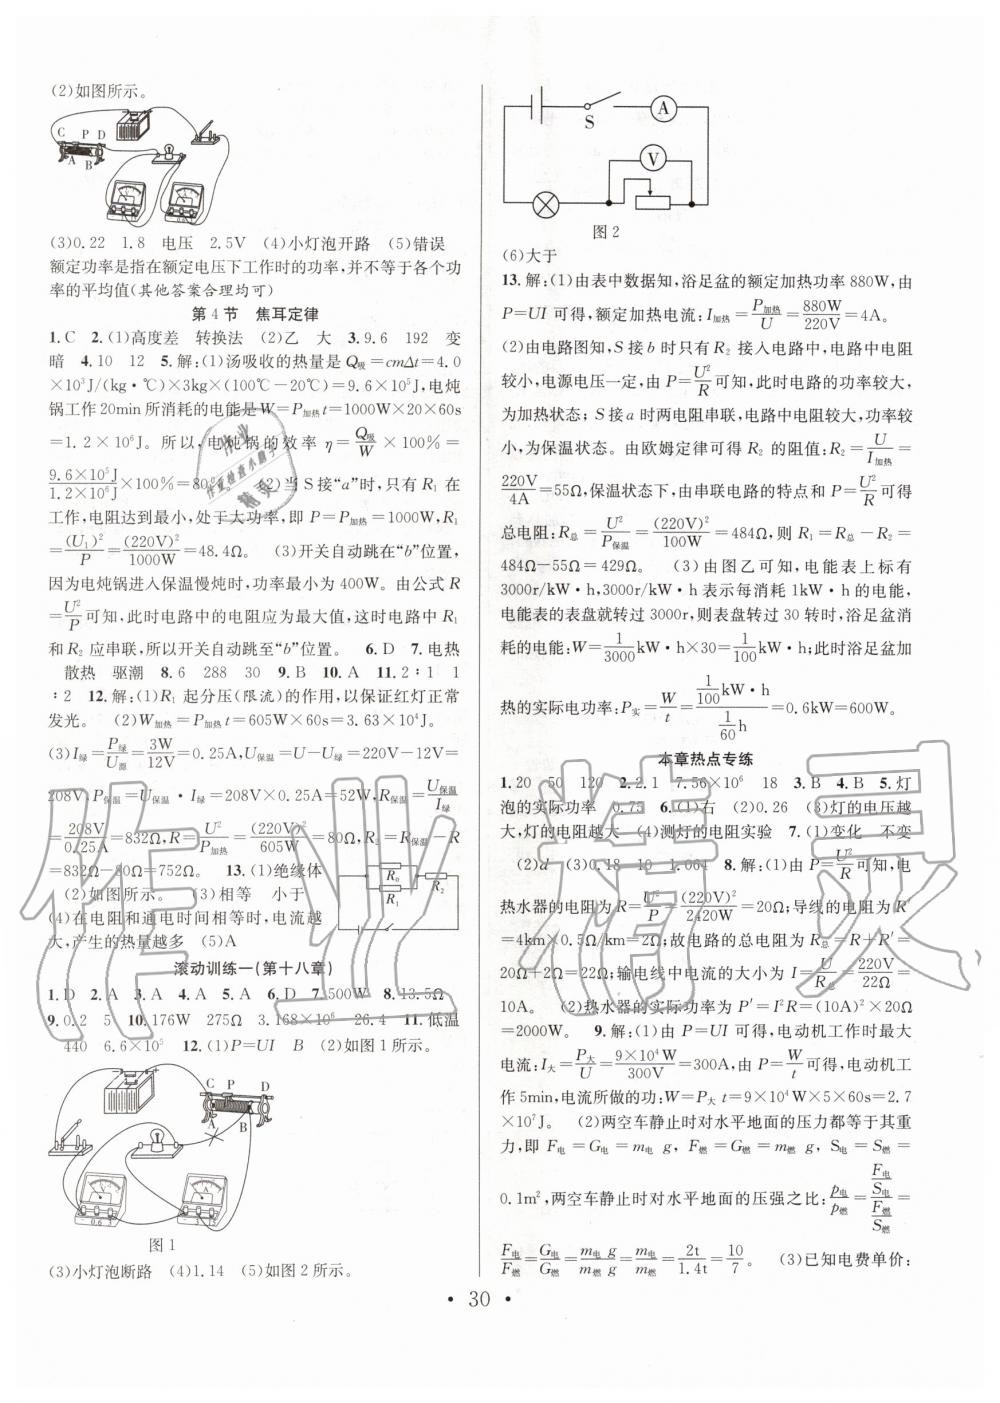 (2)如图所示。
C P D
A B
(3)0.22 1.8 电压 2.5V (4)小灯泡开路 (5)错误
额定功率是指在额定电压下工作时的功率,并不等于各个功
率的平均值(其他答案合理均可)
第4节 焦耳定律
1.C 2.(1)高度差 转换法 (2)乙 大 3.9.6 192 变
暗 4.10 12 5.解:(1)汤吸收的热量是 Q吸=cmΔt=4.0
×10³J/(kg·℃)×3kg×(100℃-20℃)=9.6×10⁵J,电炖
锅工作 20min 所消耗的电能是 W=P加热t=1000W×20×60s
=1.2×10⁶J。所以,电炖锅的效率 η=Q吸/W×100%=
9.6×10⁵J/1.2×10⁶J×100%=80%。(2)当 S 接“a”时,只有 R₁ 在
工作,电阻达到最小,处于大功率,即 P=P加热=1000W,R₁
=(U₁)²/P=(220V)²/1000W=48.4Ω。 (3)开关自动跳在“b”位置,
因为电炖锅进入保温慢炖时,功率最小为 400W。由公式 R
=U²/P可知,此时电路中的电阻应为最大值,这时电路中 R₁
和 R₂ 应串联,所以开关自动跳至“b”位置。 6.D 7.电热
散热 驱潮 8.6 288 30 9.B 10.A 11.2∶1 1
∶2 12.解:(1)R₁ 起分压(限流)的作用,以保证红灯正常
发光。 (2)W加热=P加热t=605W×60s=3.63×10⁴J。
(3)I绿=P绿/U源=3W/12V=0.25A,U保温=U-U绿=220V-12V=
208V,P保温=U保温·I绿=208V×0.25A=52W,R保温=U保温/I绿
=208V/0.25A=832Ω,R=U²/P加热=(220V)²/605W=80Ω,R₂=R保温-R
=832Ω-80Ω=752Ω。 13.(1)绝缘体
(2)如图所示。 (3)相等 小于
(4)在电阻和通电时间相等时,电流越
大,产生的热量越多 (5)A
R₀ R₂
R₁
滚动训练一(第十八章)
1.D 2.A 3.A 4.A 5.A 6.D 7.500W 8.13.5Ω
9.0.2 5 10.176W 275Ω 3.168×10⁶ 26.4 11.低温
440 6.6×10⁵ 12.(1)P=UI B (2)如图1所示。
C P D
A B
图1
(3)小灯泡断路 (4)1.14 (5)如图2所示。
S A
V
图2
(6)大于
13.解:(1)由表中数据知,浴足盆的额定加热功率 880W,由
P=UI 可得,额定加热电流:I加热=P加热/U=880W/220V=4A。
(2)由电路图知,S 接 b 时只有 R₂ 接入电路中,电路中电阻
较小,电源电压一定,由 P=U²/R可知,此时电路的功率较大,
为加热状态;S 接 a 时两电阻串联,电路中电阻较大,功率较
小,为保温状态。由欧姆定律可得 R₂ 的阻值:R₂=U/I加热=
220V/4A=55Ω,保温状态下,由串联电路的特点和 P=U²/R可得
总电阻:R总=U²/P保温=(220V)²/100W=484Ω,则 R₁=R总-R₂=
484Ω-55Ω=429Ω。 (3)由图乙可知,电能表上标有
3000r/kW·h,3000r/kW·h 表示每消耗 1kW·h 的电能,
电能表的表盘就转过 3000r,则表盘转过 30 转时,浴足盆消
耗的电能:W=1/3000kW·h×30=1/100kW·h,此时浴足盆加
热的实际电功率:P实=W/t=(1/100kW·h)/(1/60h)=0.6kW=600W。
本章热点专练
1.20 50 120 2.2.1 7.56×10⁶ 18 3.B 4.B 5.灯
泡的实际功率 0.75 6.(1)右 (2)0.26 (3)灯的电压越
大,灯的电阻越大 (4)测灯的电阻实验 7.(1)变化 不变
(2)d (3)0.18 10 1.064 8.解:(1)由 P=U²/R可知,电
热水器的电阻为 R=U²/P=(220V)²/2420W=20Ω;导线的电阻 R′
=4km×0.5Ω/km=2Ω;故电路的总电阻为 R总=R+R′=
20Ω+2Ω=22Ω;输电线中电流的大小为 I=U/R总=220V/22Ω=
10A。 (2)热水器的实际功率为 P′=I²R=(10A)²×20Ω
=2000W。 9.解:(1)由 P=UI 可得,电动机工作时最大
电流:I大=P大/U=9×10⁴W/300V=300A,由 P=W/t可得,电动机工
作 5min,电流所做的功:W=P大 t=9×10⁴W×5×60s=2.7
×10⁷J。 (2)两空车静止时对水平地面的压力都等于其重
力,即 F电=G电=m电 g,F燃=G燃=m燃 g,S电=S燃=
0.1m²,两空车静止时对水平地面的压强之比:p电/p燃=(F电/S电)/(F燃/S燃)=
F电/F燃=G电/G燃=m电 g/m燃 g=2t/1.4t=10/7。 (3)已知电费单价:
· 30 ·
作业精灵